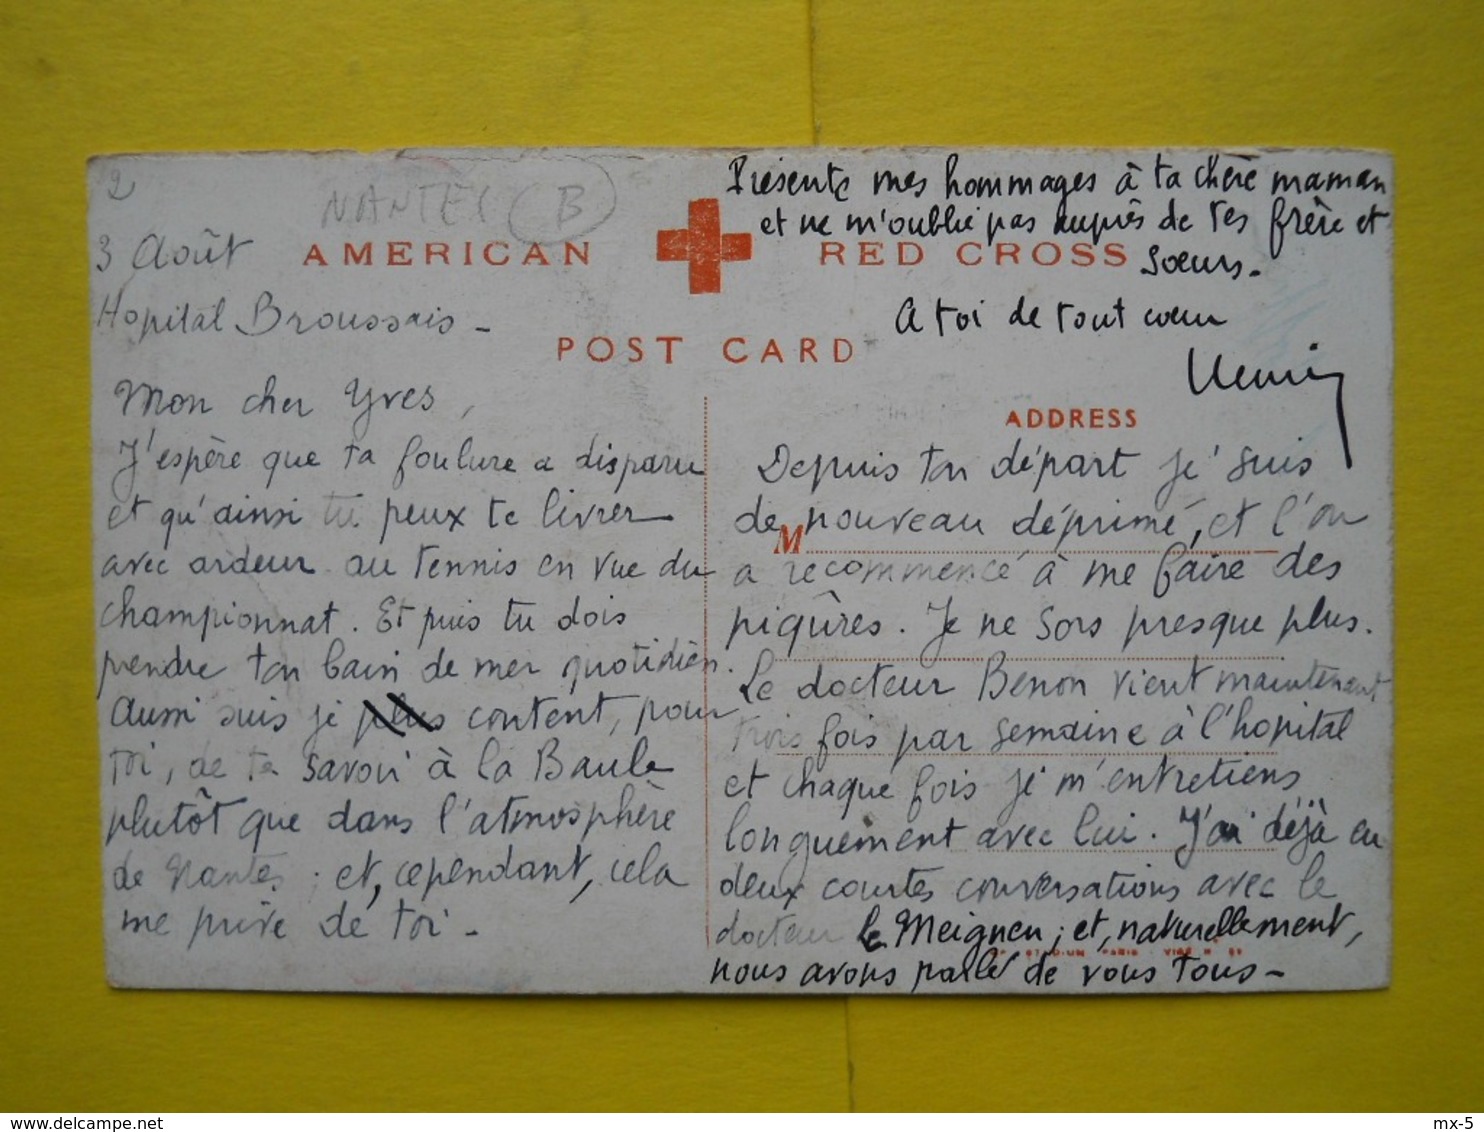 2
NANTES (B)
3 Août
Hopital Broussais -
AMERICAN RED CROSS
POST CARD
Mon cher Yves,
J'espère que ta foulure a disparu
et qu'ainsi tu peux te livrer
avec ardeur au tennis en vue du
championnat. Et puis tu dois
prendre ton bain de mer quotidien.
Aussi suis je plus content, pour
toi, de te savoir à la Baule
plutôt que dans l'atmosphère
de Nantes ; et, cependant, cela
me prive de toi -
ADDRESS
M
Depuis ton départ je suis
de nouveau déprimé, et l'on
a recommencé à me faire des
piqûres. Je ne sors presque plus.
Le docteur Benon vient maintenant
trois fois par semaine à l'hopital
et chaque fois je m'entretiens
longuement avec lui. J'ai déjà eu
deux courtes conversations avec le
docteur le Meignen ; et, naturellement,
STADIUM PARIS
nous avons parlé de vous tous -
Présente mes hommages à ta chère maman
et ne m'oublie pas auprès de tes frère et
soeurs -
A toi de tout coeur
delcampe.net
mx-5